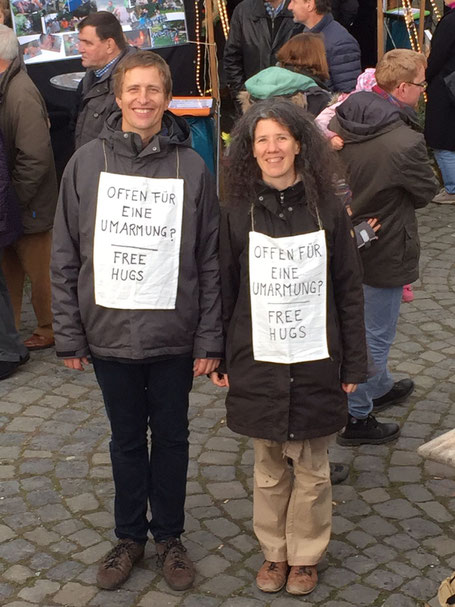 OFFEN FÜR
EINE
UMARMUNG?
FREE
HUGS
OFFEN FÜR
EINE
UMARMUNG?
FREE
HUGS